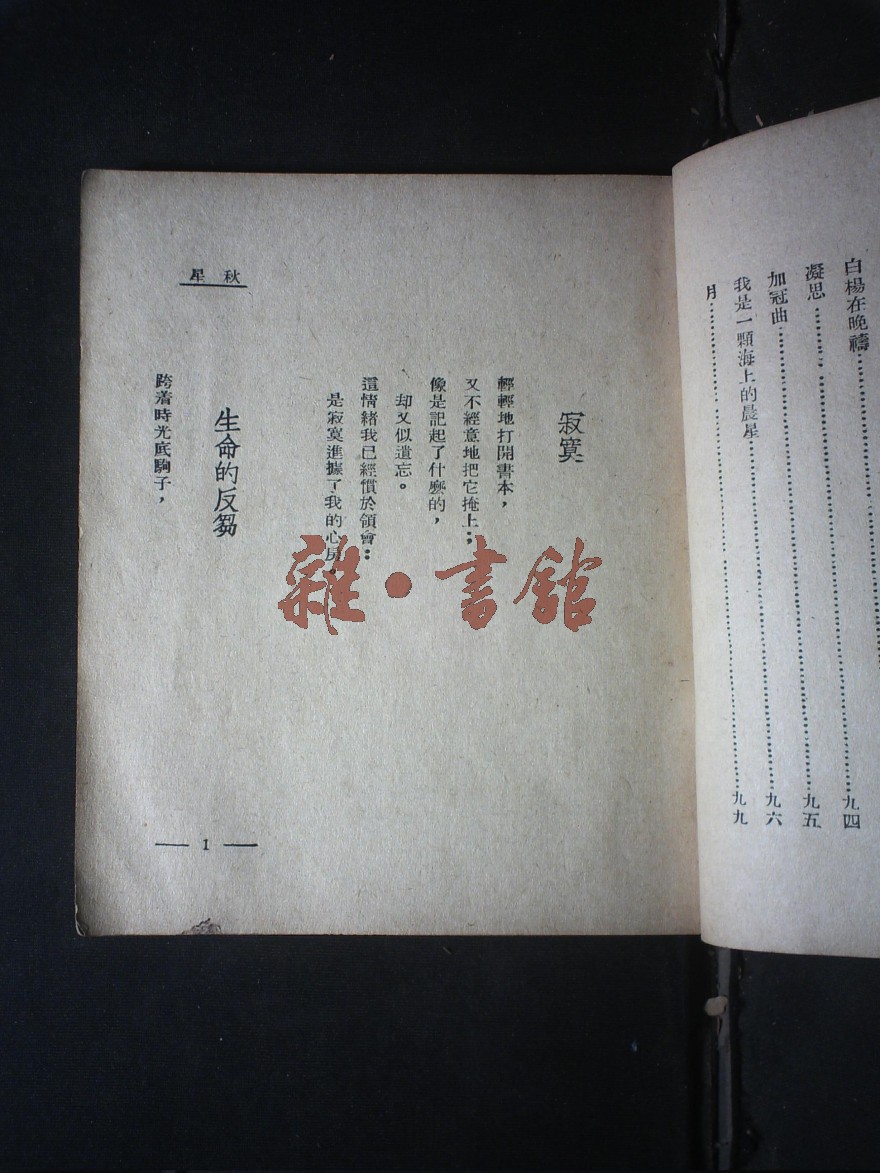 白楊在晚禱……………………九四
凝思……………………九五
加冠曲……………………九六
我是一顆海上的晨星……………………九九
月……………………
寂寞
輕輕地打開書本，
又不經意地把它掩上；
像是記起了什麼的，
却又似遺忘。
這情緒我已經慣於領會：
是寂寞進據了我的心房。
生命的反芻
跨着時光底駒子，
星秋
— 1 —
雜·書館